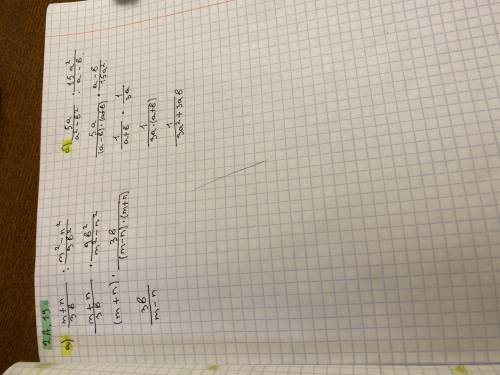 2A.19
а) m+n/3b : m²-n²/9b²
m+n/3b · 9b²/m²-n²
(m+n) · 3b/(m-n)·(m+n)
3b/m-n
б) 5a/a²-b² : 15a²/a-b
5a/(a-b)·(a+b) · a-b/15a²
1/a+b · 1/3a
1/3a·(a+b)
1/3a²+3ab